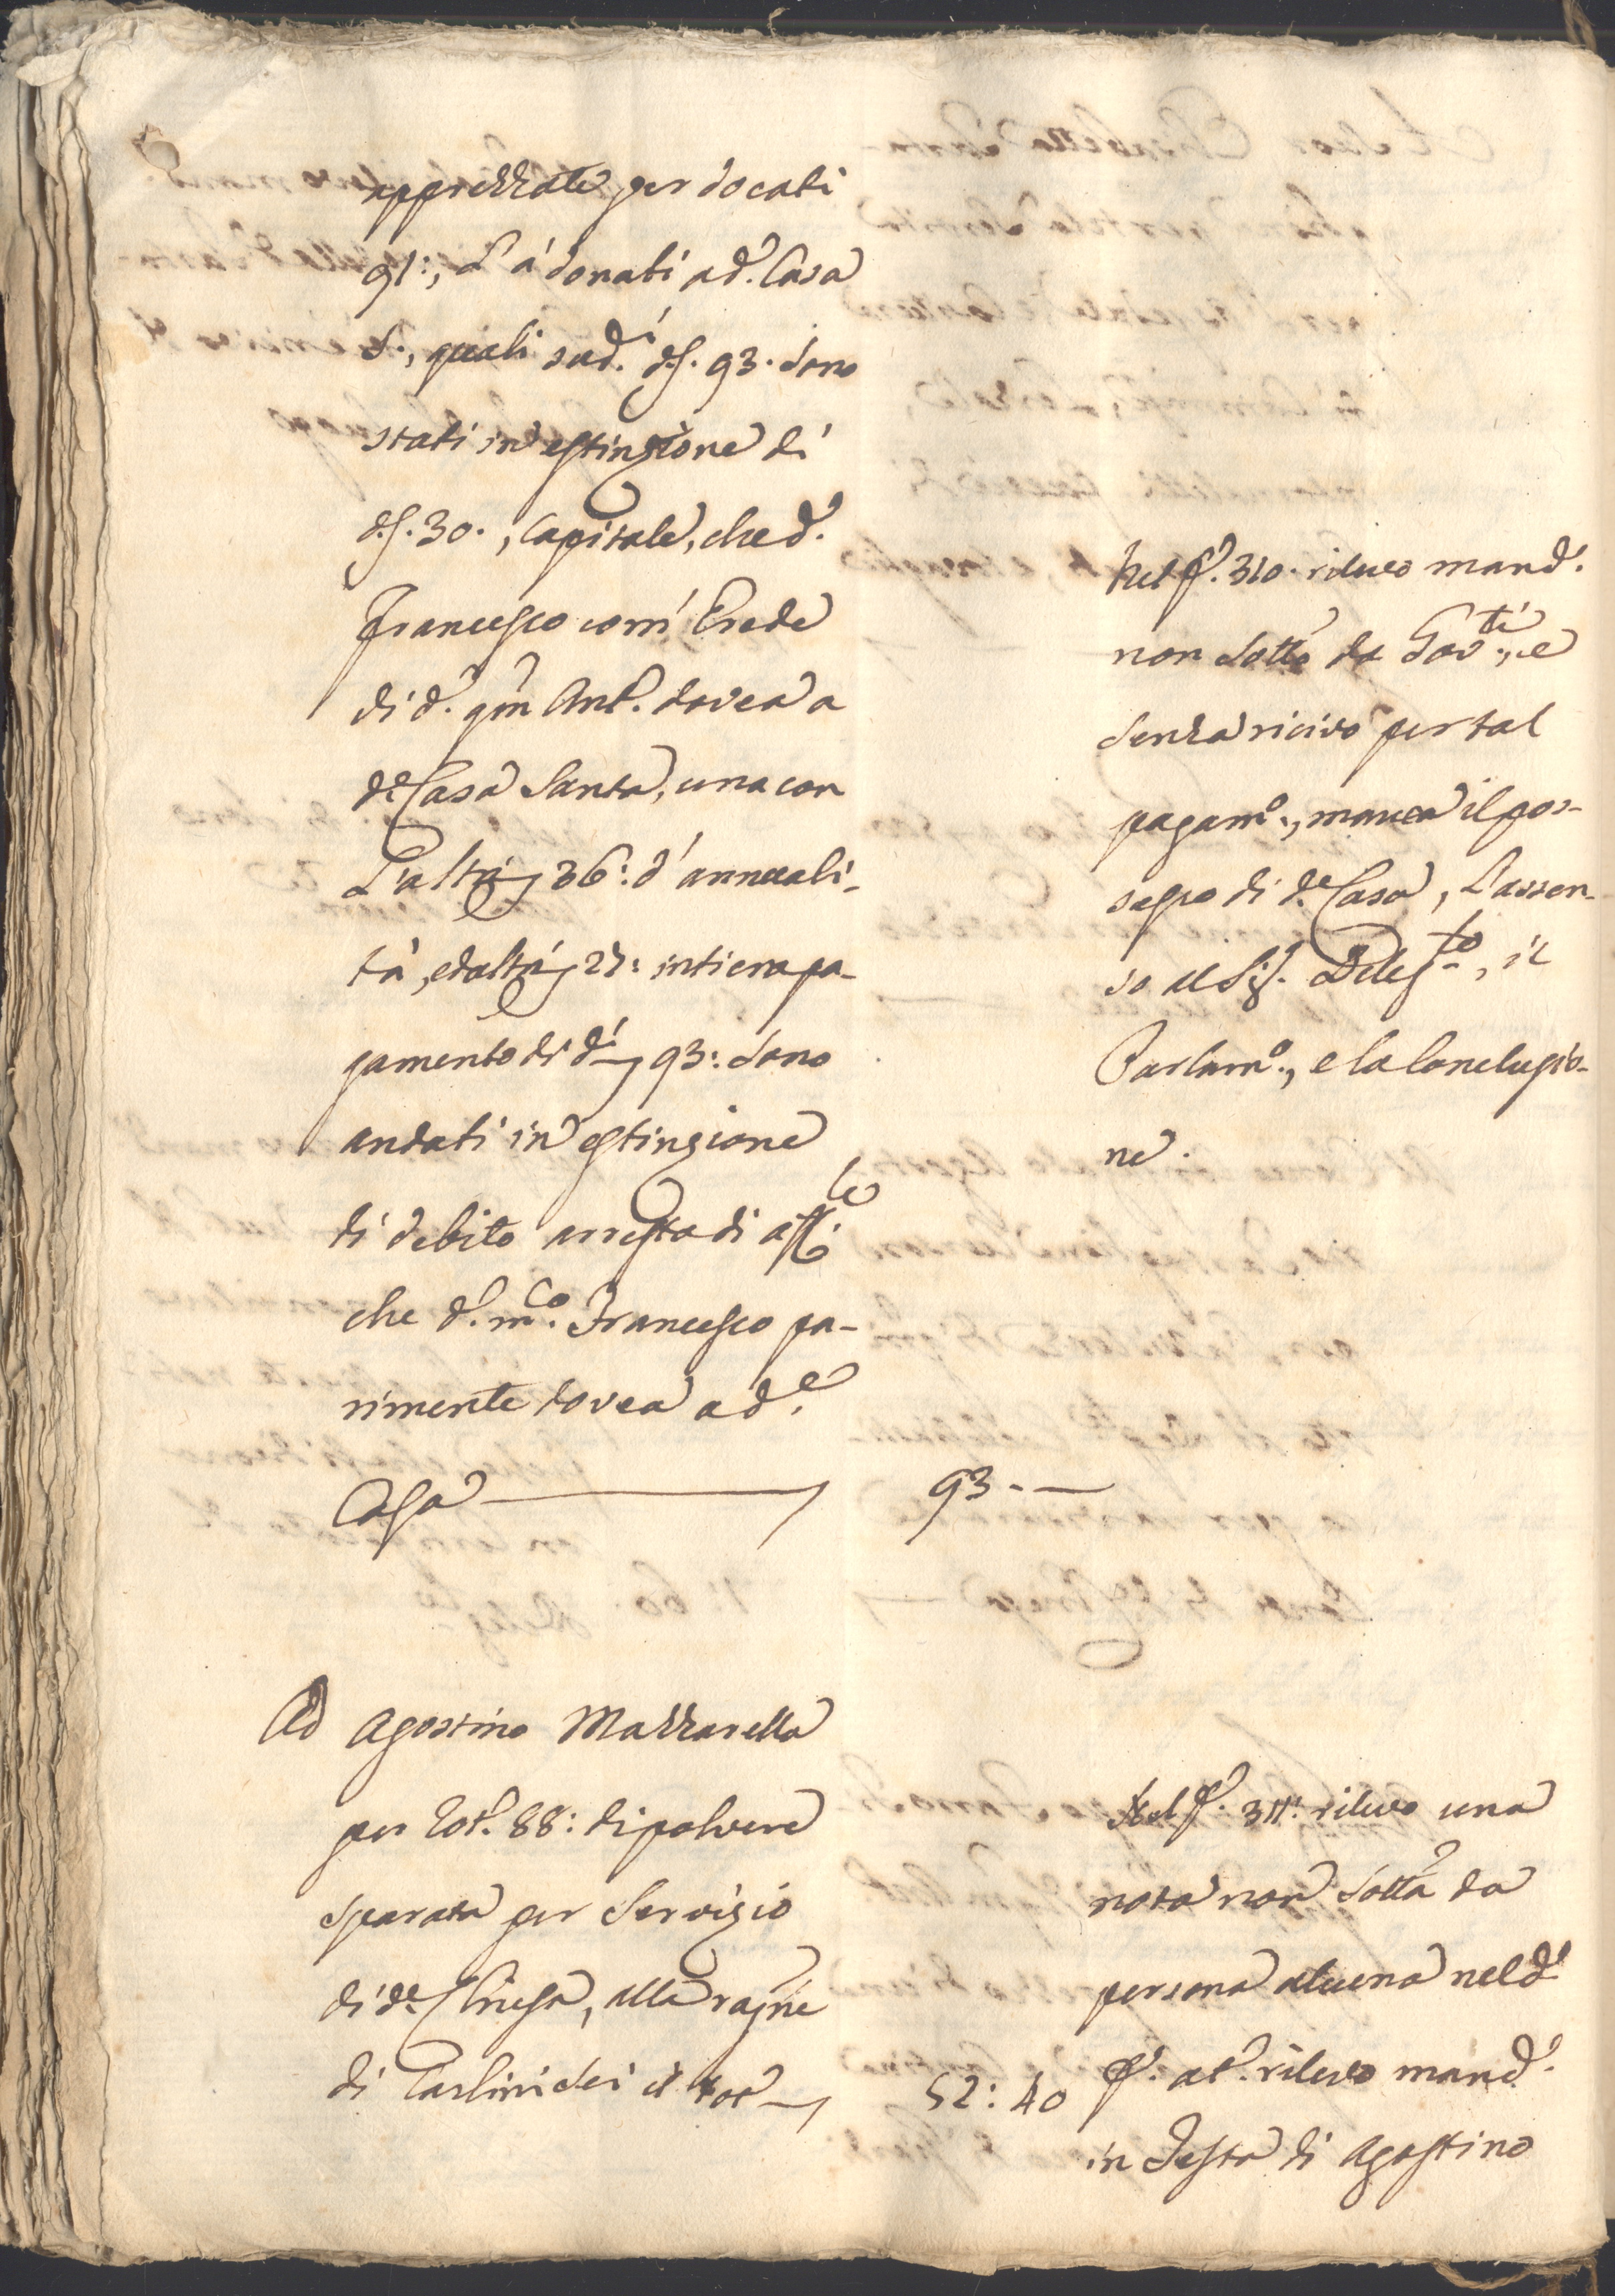 apprezzate per docati
91:, L'à donati a d.ª Casa
S., quali sud.i d. 93. sono
stati in estinzione di
d. 30., Capitale, che d.º
Francesco com'Erede
di d.º qm Ant.º dovea a
d.ª Casa Santa, una con
l'altri 36: d'annuali-
tà, ed altri 27: intiera pa-
gamento di d.i 93: sono
andati in estinzione
di debito arresta di aff.le
che d.º m.co Francesco pa-
rimente dovea a d.ª
Casa 93. —
Nel f.º 310. rilevo mand.º
non sotto da Gov.ti, e
senza ricivo per tal
pagam.º, manca il pos-
sesso di d.ª Casa, l'assen-
so del Sig.r Deleg.to, il
Parlam.º, e la Conclusio-
ne.
Ad Agostino Mazzarella
per Rot. 88: di polvere
sparata per servizio
di d.ª Chiesa, alla ragne
di Carlini sei il rot. 52: 40
Nel f.º 311: rilevo una
nota non sotta da
persona alcuna nel d.º
f.º at.º rilevo mand.º
in testa di Agostino